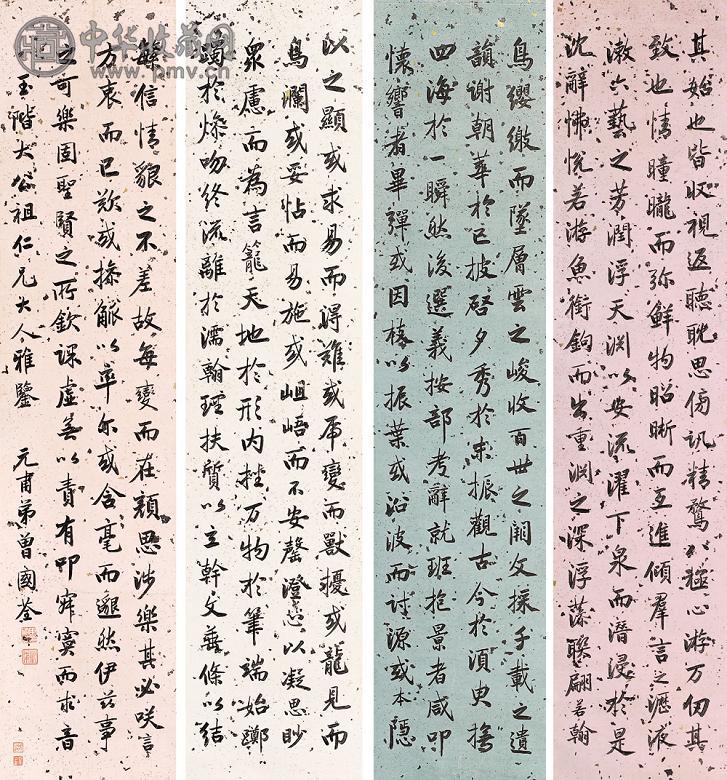 中华收藏网
www.pmv.cn
其始也皆收視返聽耽思傍訊精騖八極心游万仞其
致也情曈曨而弥鮮物昭晰而互進傾羣言之瀝液
漱六藝之芳潤浮天淵以安流濯下泉而潛浸於是
沈辭怫悅若游魚銜鉤而出重淵之深浮藻聯翩若翰
鳥纓繳而墜層雲之峻收百世之闕文採千載之遺
韻謝朝華於已披啓夕秀於未振觀古今於須臾撫
四海於一瞬然後選義按部考辭就班抱景者咸叩
懷響者畢彈或因枝以振葉或沿波而討源或本隱
以之顯或求易而得難或虎變而獸擾或龍見而
鳥瀾或妥帖而易施或岨峿而不安罄澄心以凝思眇
衆慮而為言籠天地於形內挫万物於筆端始躑
躅於燥吻終流離於濡翰理扶質以立幹文垂條以結
繁信情貌之不差故每變而在顏思涉樂其必咲言
方哀而已歎或操觚以率尔或含毫而邈然伊茲事
之可樂固聖賢之所欽課虛無以責有叩寂寞而求音
玉階大公祖仁兄大人雅鑒 元甫弟曾國荃